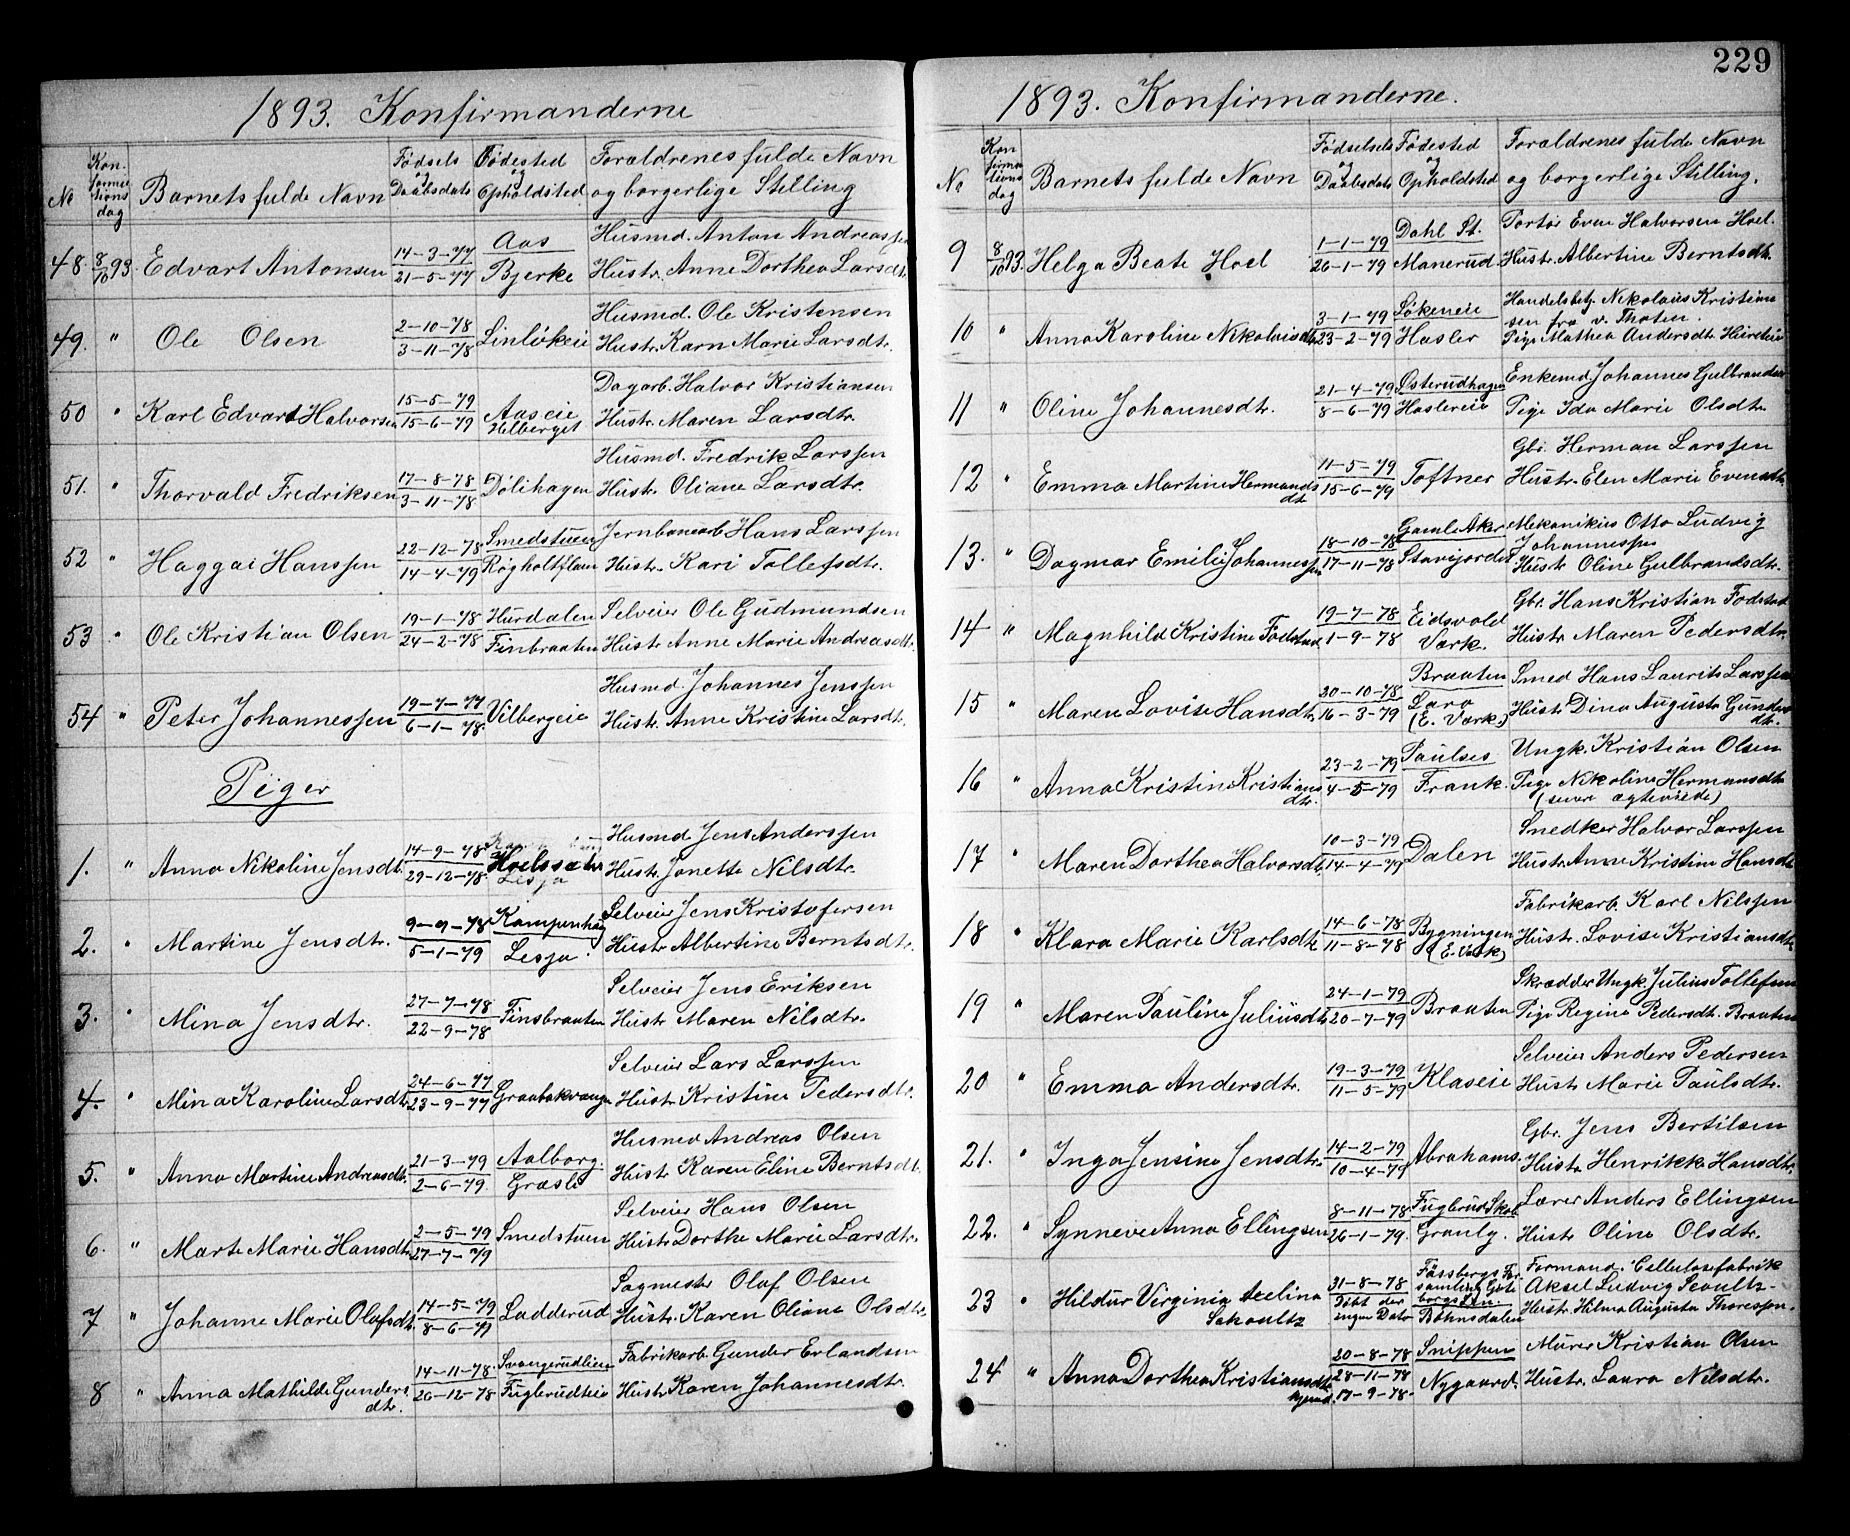 1893. Konfirmanderne
No
Kon-
firma-
tions
dag
Barnets fulde Navn
Fødsels
og
Daabsdato
Fødested
og
Opholdsted.
Foræeldrenes fulde Navn
og borgerlige Stilling
48. 8/10 93. Edvart Antonsen
14-3-77
21-5-77
Aas
Bjerke
Husmd. Anton Andreassen
Hustr. Anne Dorthea Larsdt.
49. " Ole Olsen
2-10-78
3-11-78
Linløkeie
Husmd. Ole Kristensen
Hustr. Karn Marie Larsdtr.
50 " Karl Edvart Halvorsen
15-5-79
15-6-79
Aaseie
Helberget
Dagarb. Halvor Kristiansen
Hustr. Maren Larsdtr.
51. " Thorvald Fredriksen
17-8-78
3-11-78
Dølihagen
Husmd. Fredrik Larssen
Hustr. Oliane Larsdtr.
52 " Haggai Hanssen
22-12-78
14-4-79
Smedstuen
Røgholtflaen
Jernbanearb. Hans Larssen
Hustr. Kari Tollefsdtr.
53 " Ole Kristian Olsen
19-1-78
24-2-78
Hurdalen
Finbraaten
Selveier Ole Gudmundsen
Hustr Anne Marie Andreasdtr.
54 " Peter Johannessen
19-7-77
6-1-78.
Vilbergeie
Husmd. Johannes Jenssen
Hustr. Anne Kristine Larsdtr.
Piger
1. " Anna Nikoline Jensdt.
14-9-78
29-12-78.
Hoelssæter
Lesja
Husmd Jens Anderssen
Hustr. Jonette Nilsdtr.
2. " Martine Jensdtr.
9-9-78
5-1-79
Kampenhaug
Lesja.
Selveier Jens Kristofersen
Hustr Albertine Berntsdtr.
3. " Mina Jensdtr.
27-7-78
22-9-78
Finsbraaten
Selveier Jens Eriksen
Hustr Maren Nilsdtr.
4. " Mina Karoline Larsdtr.
24-6-77
23-9-77
Selveier Lars Larssen
Hustr Kristine Pedersdtr.
5. " Anna Martine Andreasdtr.
21-3-79
2-6-79.
Aalborg.
Græsli
Husmd Andreas Olsen
Hustr Karen Eline Berntsdt.
6. " Marte Marie Hansdtr.
2-5-79
27-7-79
Smedstuen
Selveier Hans Olsen
Hustr Dorthe Marie Larsdtr.
7 " Johanne Marie Olafsdt.
14-5-79
8-6-79
Ladderud
Sagmester Olaf Olsen
Hustr. Karen Oliane Olsdtr.
8 " Anna Mathilde Gunders
dtr.
14-11-78.
26-12-78
Svangerudleie
Fuglerudteie
Fabrikarb. Gunder Erlandsen
Hustr Karen Johannesdtr.
229
1893. Konfirmanderne.
No
Kon
firma
tions
dag
Barnets fulde Navn
Fødselsets
og
Daabsdato
Fødested
og
Opholdsted
Foræeldrenes fulde Navn
og borgerlige Stilling.
9 8/10 93. Helga Beate Hoel
1-1-79
26-1-79
Dahl St.
Manerud.
Portør Even Halvorsen Hoel.
Hustr. Albertine Berntsdtr.
10 " Anna Karoline Nikolaisdtr.
3-1-79
23-2-79
Løkeneie
Hasler
Handelsbetj. Nikolaius Kristian
sen fra v. Thoten.
Pige Mathea Andersdtr.
11 " Oline Johannesdtr.
21-4-79
8-6-79
Østerudhagen
Haslereie
Enkemd Johannes Gulbrandsen
Pige Ida Marie Olsdtr.
12 " Emma Martine Hermands
dtr.
11-5-79
15-6-79
Toftner
Gbr. Herman Larssen
Hustr. Elen Marie Evensdtr.
13. " Dagmar Emilie Johannessen
18-10-78
17-11-78
Gamle Aker
Stavijordet
Mekanikus Otto Ludvig
Johannessen
Hustr Oline Gulbrandsdtr.
14 " Magnhild Kristine Fodstad.
19-7-78
1-9-78
Eidsvold
Værk.
Gbr. Hans Kristian Fodstad
Hustr Maren Pedersdtr.
15 " Maren Lovise Hansdtr.
20-10-78
16-3-79
Braaten
Lara
(E. Værk.)
Smed Hans Laurits Larssen
Hustr Dina Augusta Gunders
dtr.
16 " Anna Kristine Kristians
dtr.
23-2-79
4-5-79
Paulses
Frank.
Ungk. Kristian Olsen
Pige Nikoline Hermansdtr.
(senere ægteviede)
17 " Maren Dorthea Halvorsdtr.
10-3-79
14-4-79
Dalen
Snedker Halvor Larssen
Hustr. Anne Kristine Hansdtr.
18 " Klara Marie Karlsdtr.
14-6-78
11-8-78
Bygningen
(E. Værk)
Fabrikarb. Karl Nilssen
Hustr. Lovise Kristiansdtr.
19 " Maren Pauline Juliusdtr.
24-1-79
20-7-79
Braaten
Skrædder Ungk. Julius Tollefsen
Pige Regine Pedersdtr. Braaten
20 " Emma Andersdtr.
19-3-79
11-5-79
Klaseie
Selveier Anders Pedersen
Hustr Marie Paulsdtr.
21. " Inga Jensine Jensdtr.
14-2-79
10-4-79
Abrahams.
Gbr. Jens Bertilsen
Hustr. Henrikke Hansdtr.
22. " Synneve Anna Ellingsen
8-11-78
26-1-79.
Fuglerud Skol
Granly.
Lærer Anders Ellingsen
Hustr Oline Olsdtr.
23 " Hildur Virginia Axelina
Schoultz
31-8-78
Døbt der
ingen Dato
Fässbergs For
samling Göte
borgs Len
Bøhnsdalen
Formand. Cellulosefabrik
Aksel Ludvig Scoultz-
Hustr. Hilma Augusta Thoressen.
24 " Anna Dorthea Kristiansdtr.
Nygaard.
20-8-78
28-11-78
17-9-78-
Snippen
Nygaard.
Murer Kristian Olsen
Hustr. Laura Nilsdtr.